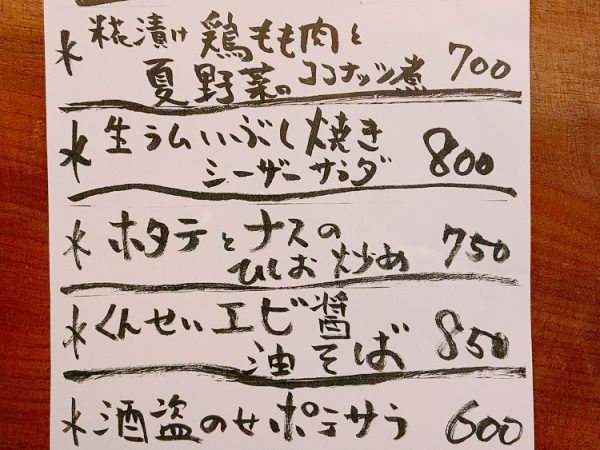 * 糀漬け 鶏もも肉と
夏野菜のココナッツ煮 700
* 生ラムいぶし焼き
シーザーサラダ 800
* ホタテとナスの
ひしお炒め 750
* くんせいエビ醤
油そば 850
* 酒盗のせポテサラ 600